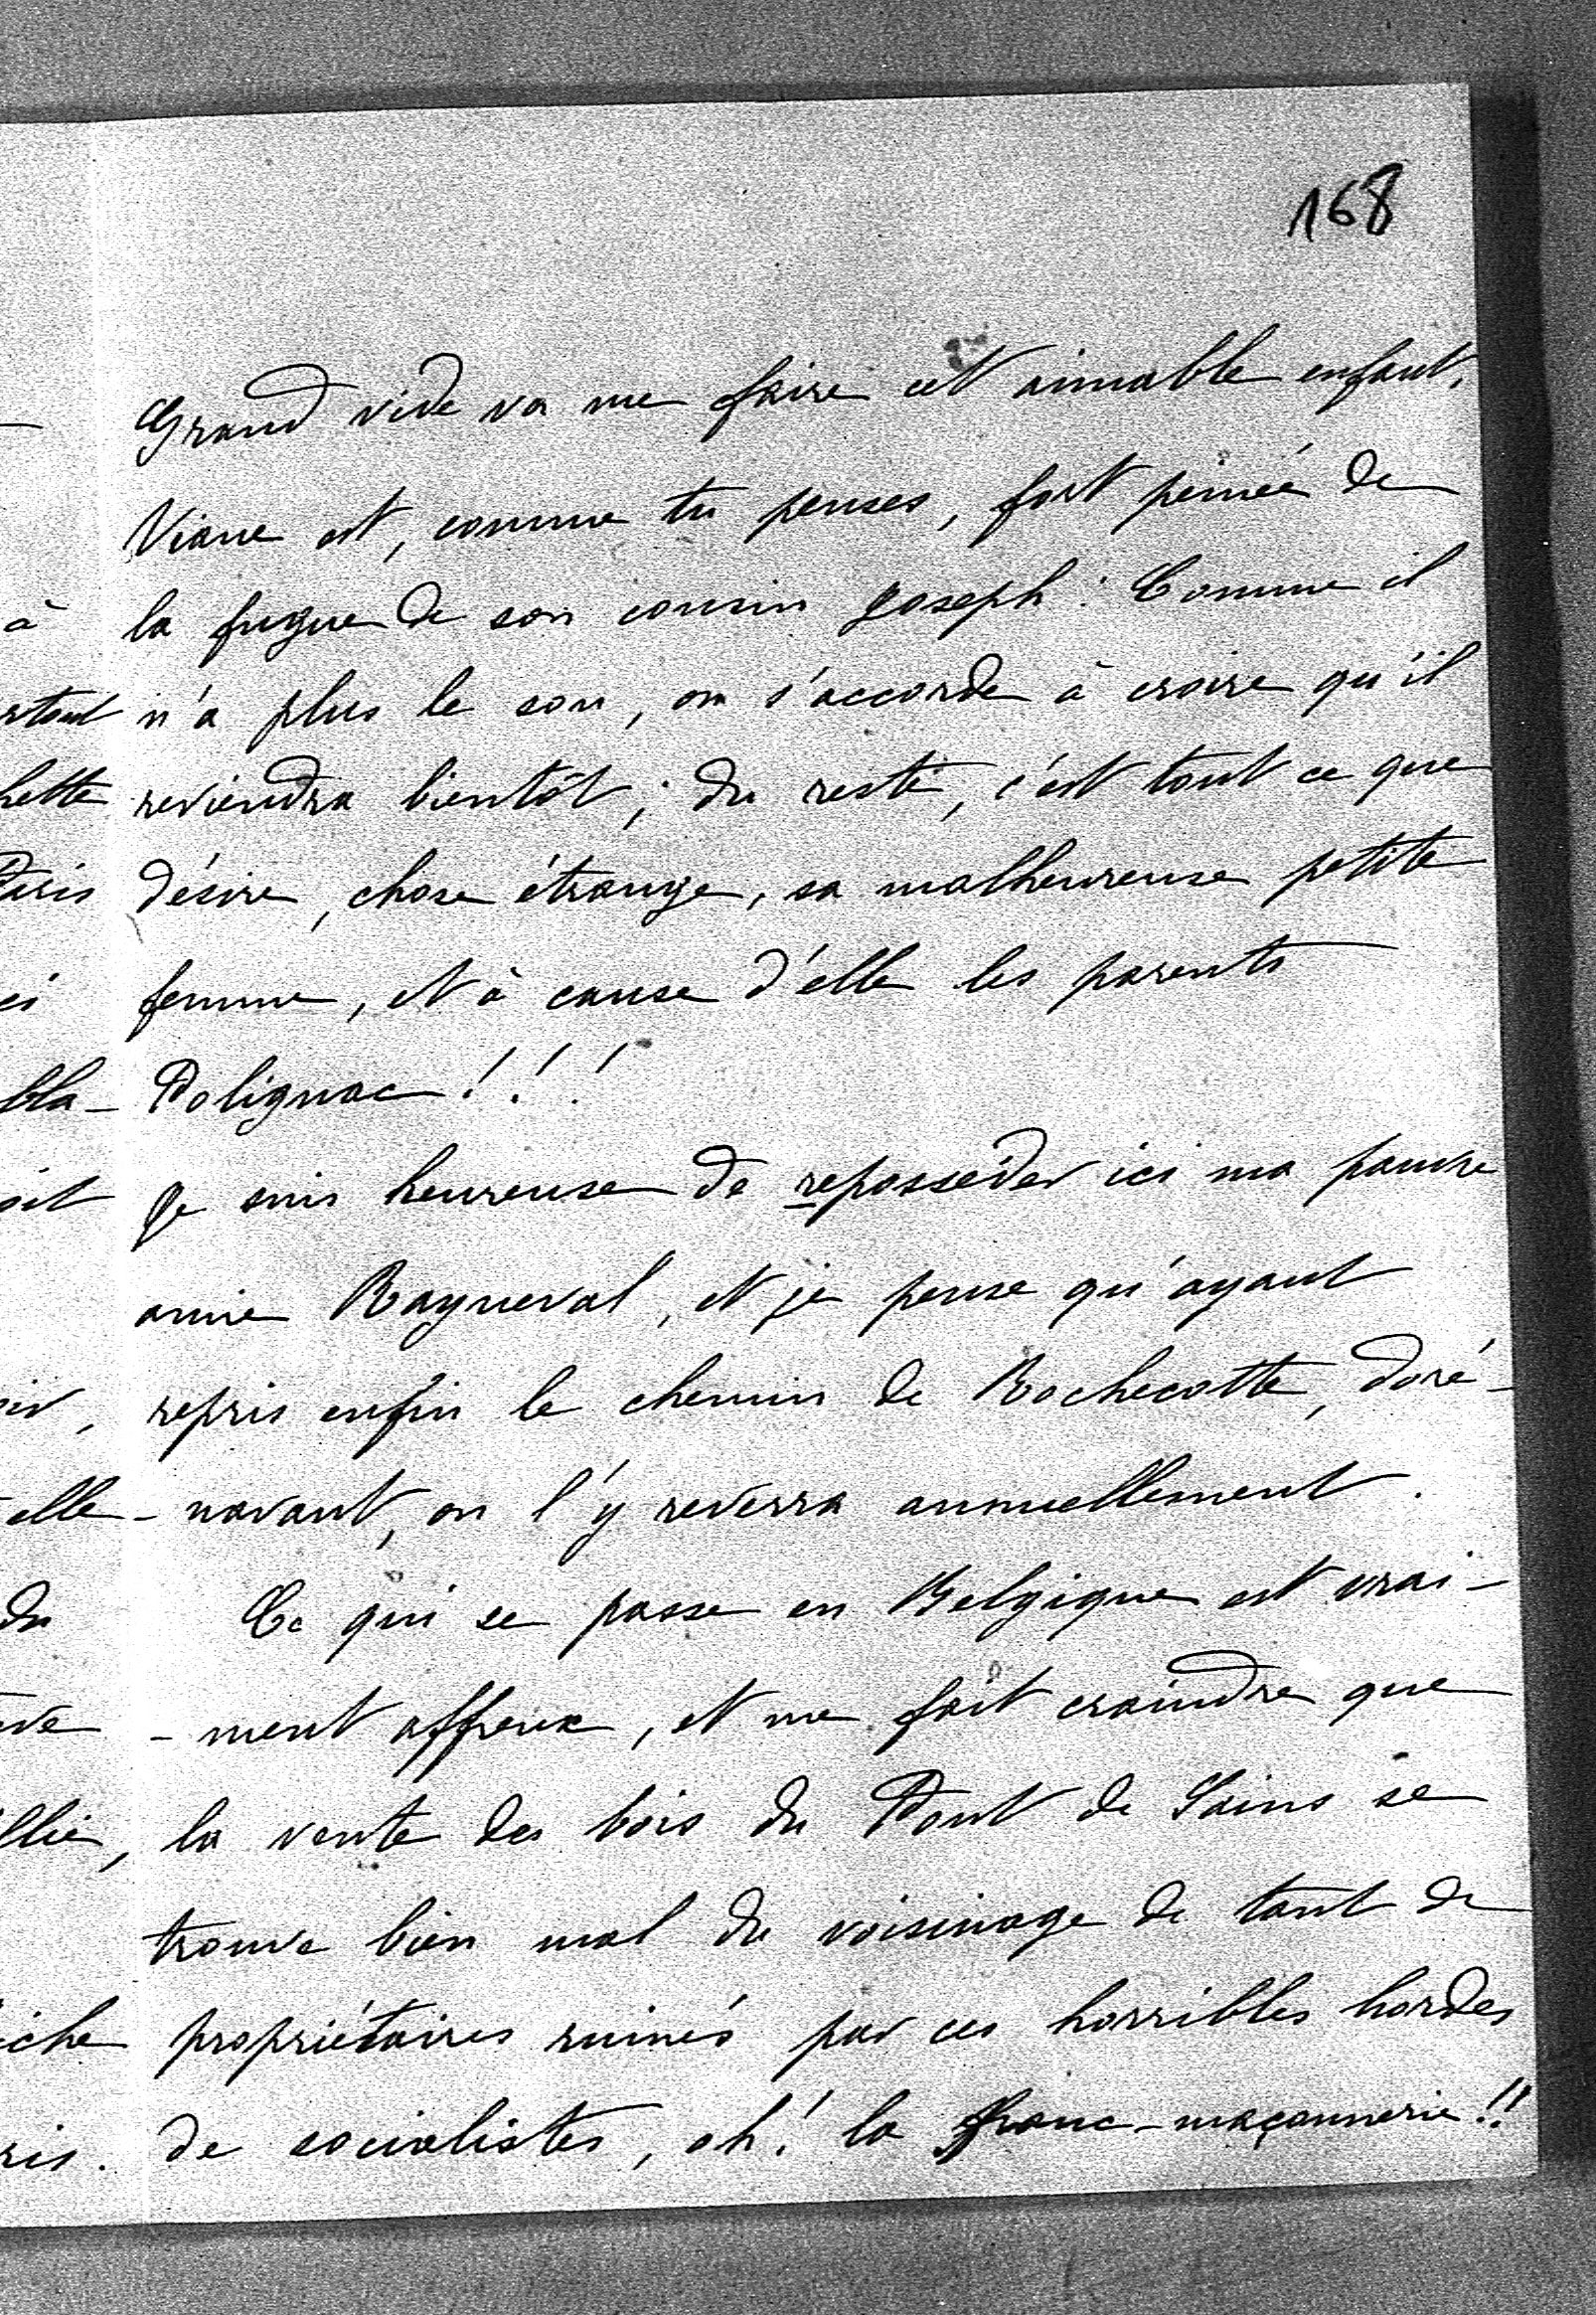 168
Grand vide va me faire cet aimable enfant.
Viane est, comme tu penses, fort peinée de
la fugue de son cousin Joseph : Comme il
n'a plus le sou, on s'accorde à croire qu'il
reviendra bientôt ; du reste, c'est tout ce que
désire, chose étrange, sa malheureuse petite
femme, et à cause d'elle les parents
Polignac ! ! !
Je suis heureuse de reposséder ici ma pauvre
amie Rayneval, et je pense qu'ayant
repris enfin le chemin de Rochecotte, doré-
-navant, on l'y reverra annuellement.
Ce qui se passe en Belgique est vrai-
-ment affreux, et me fait craindre que
la vente des bois du Pont de Sains se
trouve bien mal du voisinage de tant de
propriétaires ruinés par ces horribles hordes
de socialistes, oh ! la franc-maçonnerie !!